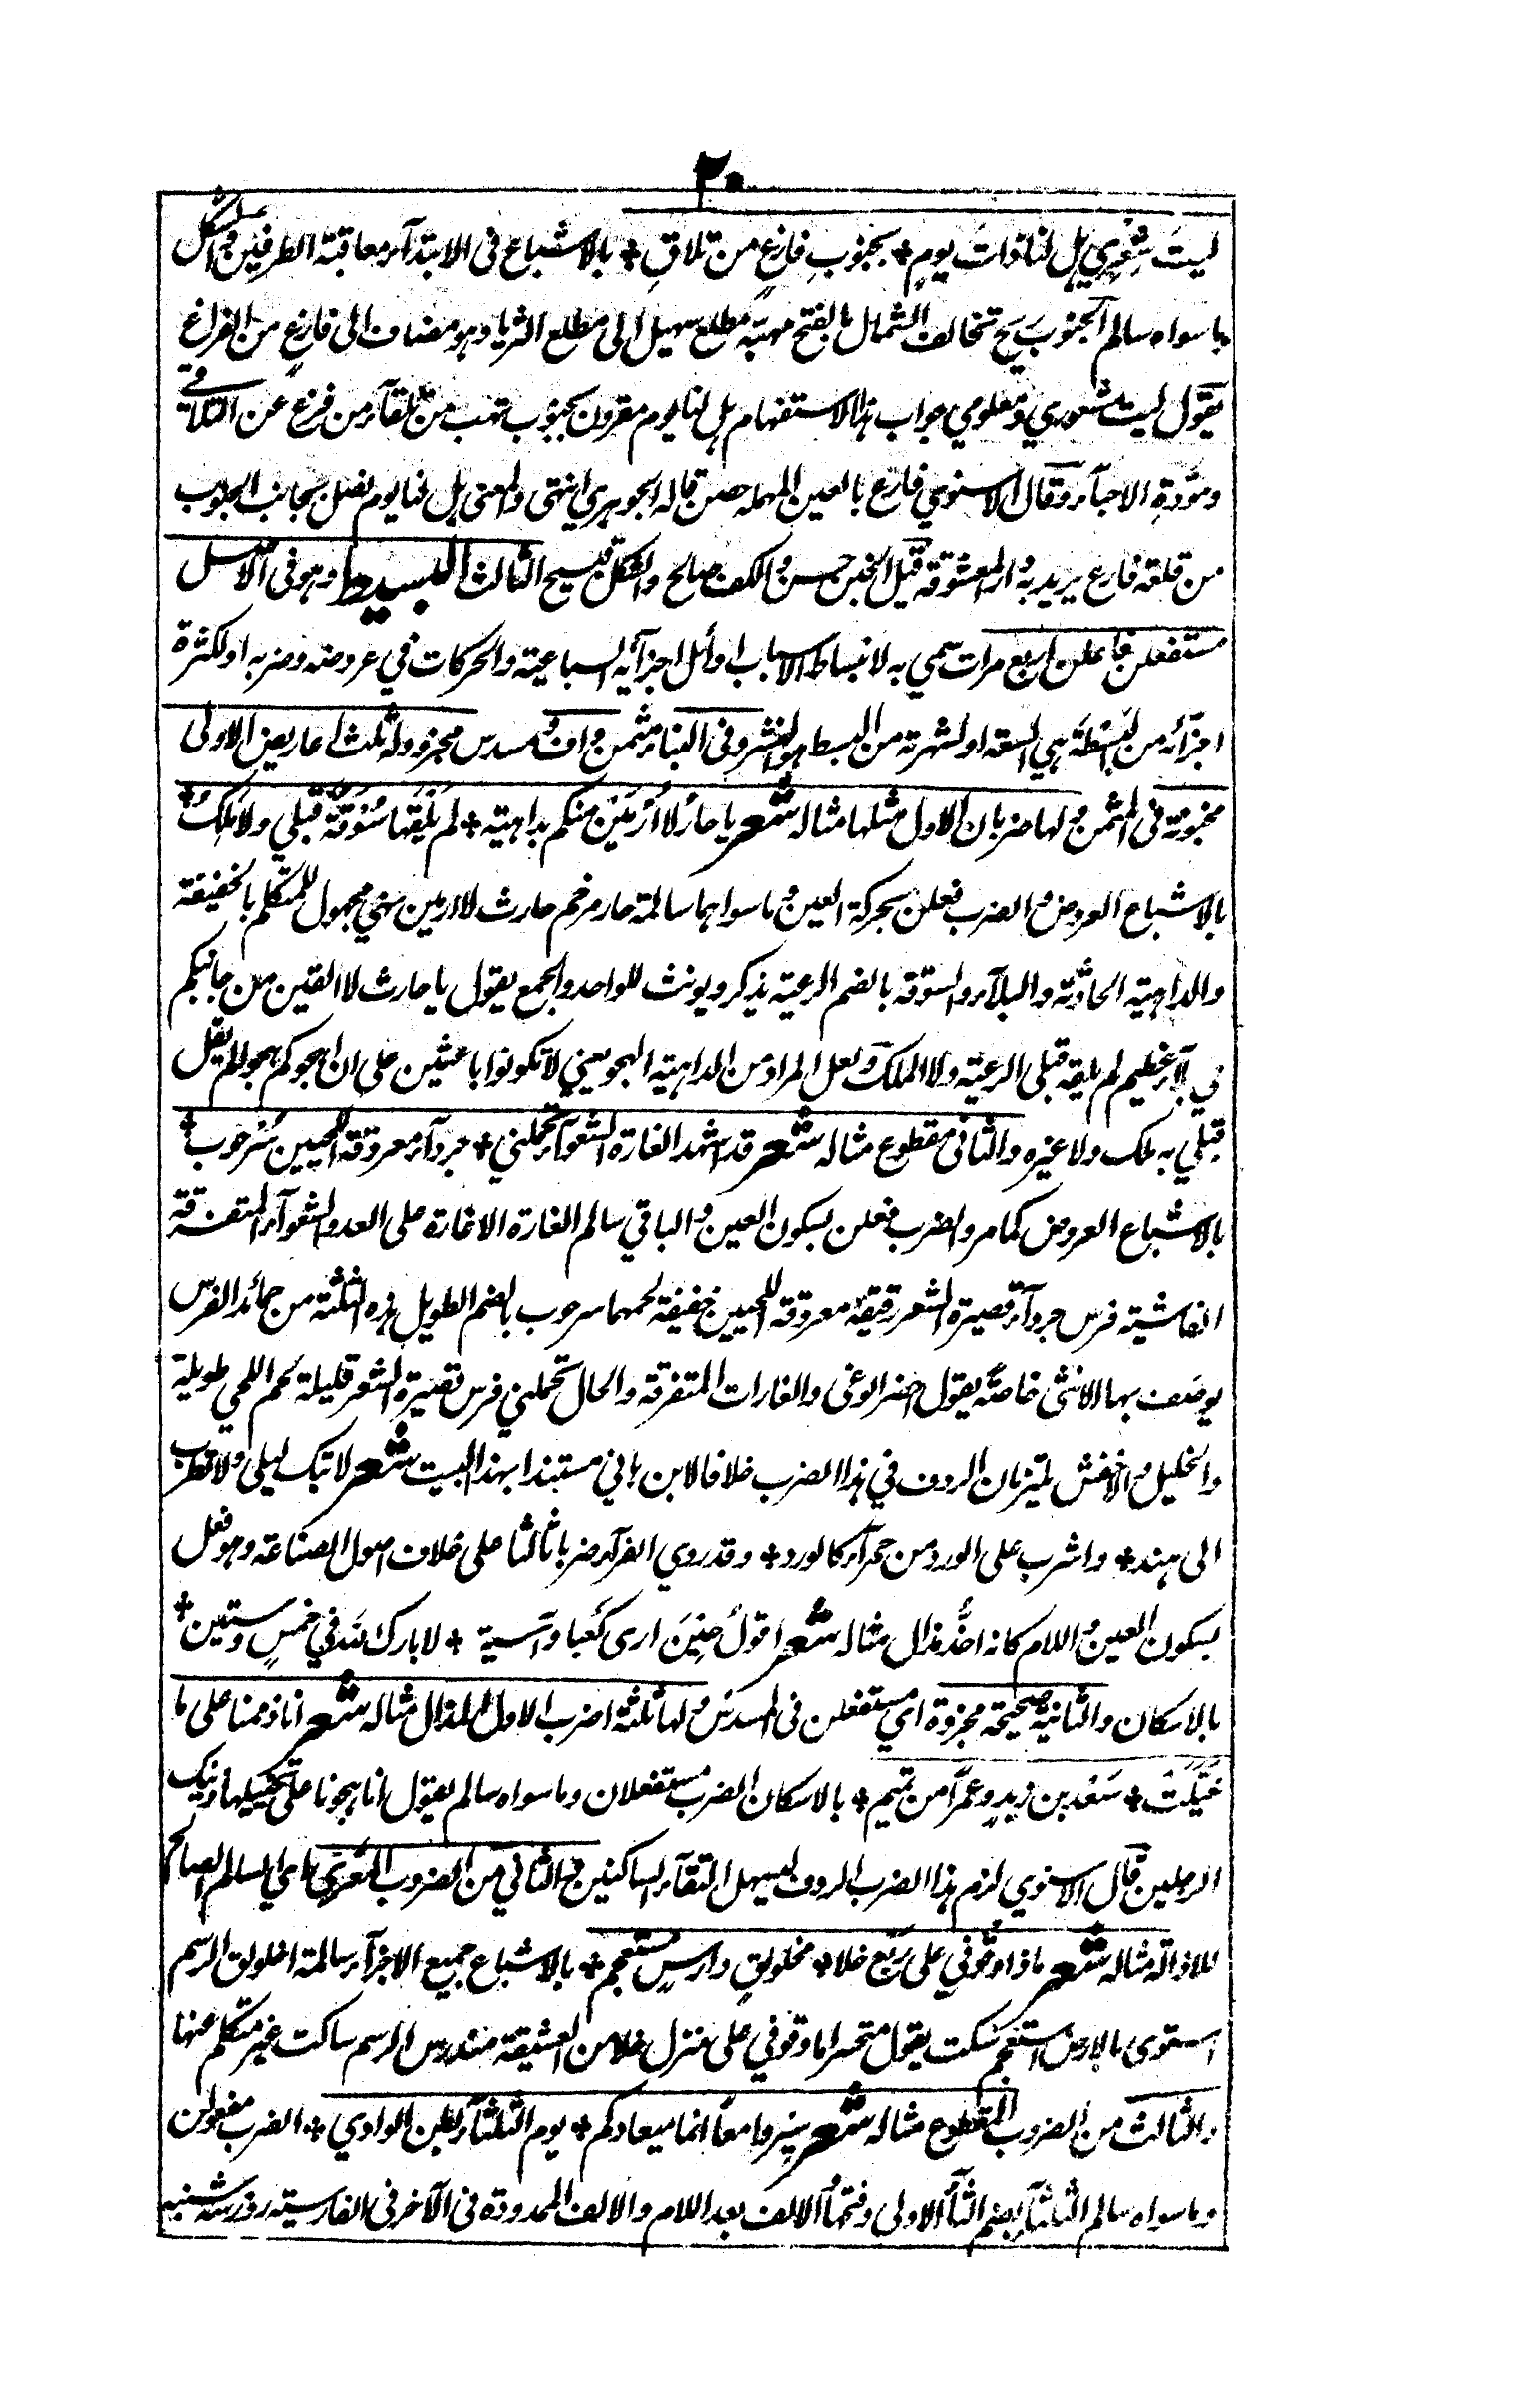 ٢٠
ليتَ شِعْرِي هل لنا ذاتَ يومٍ + بجنوبِ فازعٍ من تلاقِ + بالاشباع فى الابتدآء معاقبة الطرفين فى الشكل
ما سواه سالم الجنوب ريح تخالف الشمال بالفتح مهبّه مطلع سهيل الى مطلع الثريا وهو مضاف الى فازعٍ من الفراغ
يقول ليت شعوري ومعلومي جواب هذا الاستفهام هل لنا يوم مقرون بجنوب تهب من تلقآء من فرغ عن التلاقى
ومودةِ الاحبآء وقال الاسنوي فارع بالعين المهمله حصن قاله الجوهري انتهى والمعنى هل لنا يوم نصل بجانب الجنوب
من قلعة فارع يريد به دار المعشوقة قيل الخبن حسن والكف صالح والشكل قبيح الثالث البسيط وهو فى الاصل
مستفعلن فاعلن اربع مرات سمي به لانبساط الاسباب اوائل اجزآئه السباعية والحركات في عروضه وضربه او لكثرة
اجزآئه من البَسْطَة هي السعة او لشهرته من البسط هو النشر وفى البناء مثمن واف ومسدس مجزو وله ثلث اعاريض الاولى
مخبونة فى المثمن ولها ضربان الاول مثلها مثاله شعر يا حارُ لا اُرْمَيَنْ منكم بداهيته + لم يَلْقَها سُوْقَةٌ قبلي ولا مَلِكُ +
بالاشباع العروض والضرب فعلن بحركة العين وما سواهما سالمة حار مرخم حارث لا ارمين نهي مجهول للمتكلم بالخفيفة
والداهية الحادثة والبلآء والسوقة بالضم الرعية يذكر ويونث للواحد والجمع يقول يا حارث لا القين من جانبكم
في بلآء عظيم لم يلقه قبلى الرعية ولا الملك ولعل المراد من الداهية الهجو يعني لا تكونوا باعثين على ان اهجوكم هجوا لم يقل
قبلي به ملك ولا غيره والثانى مقطوع مثاله شعر قد اشهد الغارة الشعوآء تحملني + جردآء معروقة اللحيين سُرحوب +
بالاشباع العروض كما مر والضرب فعلن بسكون العين والباقي سالم الغارة الاغارة على العدو الشعوآء المتفرقة
الفاشية فرس جردآء قصيرة الشعر رقيقة معروقة اللحيين خفيفة لحمهما سرحوب بالضم الطويل هذه الثلثة من جمائد الفرس
يوصف بها الانثى خاصّة يقول احضر الوغى والغارات المتفرقة والحال تحملني فرس قصيرة الشعر قليلة لحم اللحي طويلة
والخليل والاخفش يلتزمان الردف في هذا الضرب خلافا لابن هاني مستندا بهذا البيت شعر لا تبك ليلى ولا تطرب
الى هند + واشرب على الورد من حمرآء كالورد + وقد روي الفرآء ضربا ثالثا على خلاف اصول الصناعة وهو فعل
بسكون العين واللام كانه احذُّ مذال مثاله شعر اقولُ حِيْنَ ارى كَعْبا وآسية + لا بارك لله في خمسٍ وستين +
بالاسكان والثانية صحيحة مجزوة اي مستفعلن فى المسدس ولها ثلثة اضرب الاول المذال مثاله شعر انا ذممنا على ما
خَيَّلَتْ + سَعْدَ بن زيدٍ وعمرًا من تميم + بالاسكان الضرب مستفعلان وما سواه سالم يقول انا هجونا على تخييلها ذينك
الرجلين قال الاسنوي لزم هذا الضرب الردف ليسهل التقآء الساكنين والثاني من الضروب المُعْرَى اي السالم الصالح
للاذالة مثاله شعر ماذا وقُوفي على رَبْعٍ خلا + مخلولقٍ دارسٍ مستعجم + بالاشباع جميع الاجزآء سالمة اخلولق الرسم
استوى بالارض استعجم سكت يقول متحسرا ما وقوفي على منزل خلا من العشيقة مندرس الرسم ساكت غير متكلم عنها
والثالث من الضروب المقطوع مثاله شعر سِيْروا معًا انما ميعادكم + يوم الثلثآء بطن الوادي + الضرب مفعولن
وما سواه سالم الثلثآء بضم الثآء الاولى وفتحها والالف بعد اللام والالف الممدودة فى الآخر فى الفارسية روز سه شنبه